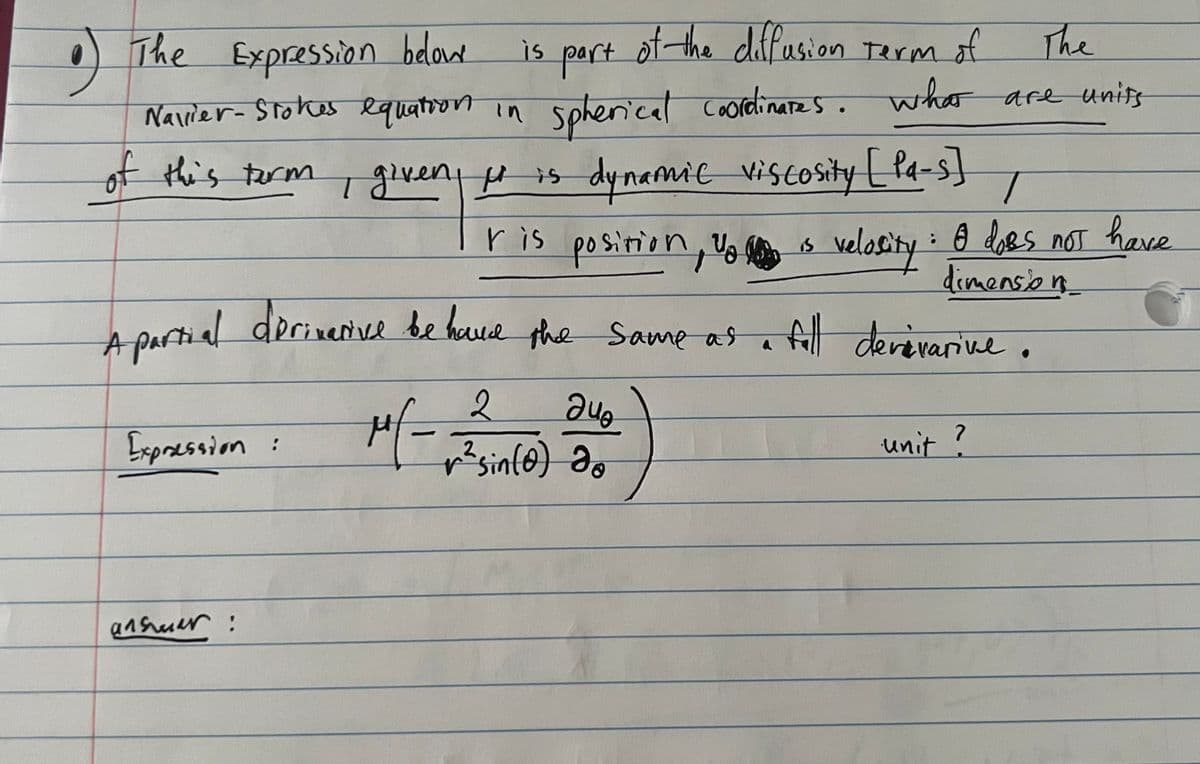 •) The Expression below is part of the diffusion Term of The
Navier-Stokes equation in spherical coordinates. what are units
of this term, given, μ is dynamic viscosity [Pa-s],
r is position, u_θ is velosity : θ does not have
dimension
A partial derivative behave the Same as a full derivative.
Expression : μ(- 2/(r² sin(θ)) ∂u_θ/∂θ) unit ?
answer :